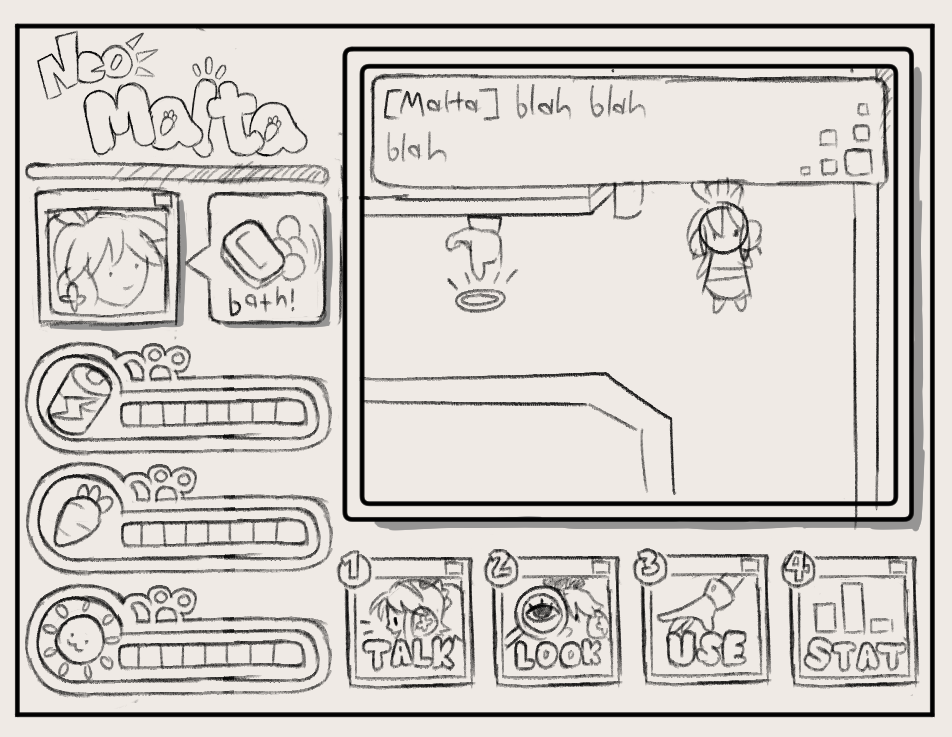 Neo
Malta
[Malta] blah blah
blah
bath!
1
TALK
2
LOOK
3
USE
4
STAT